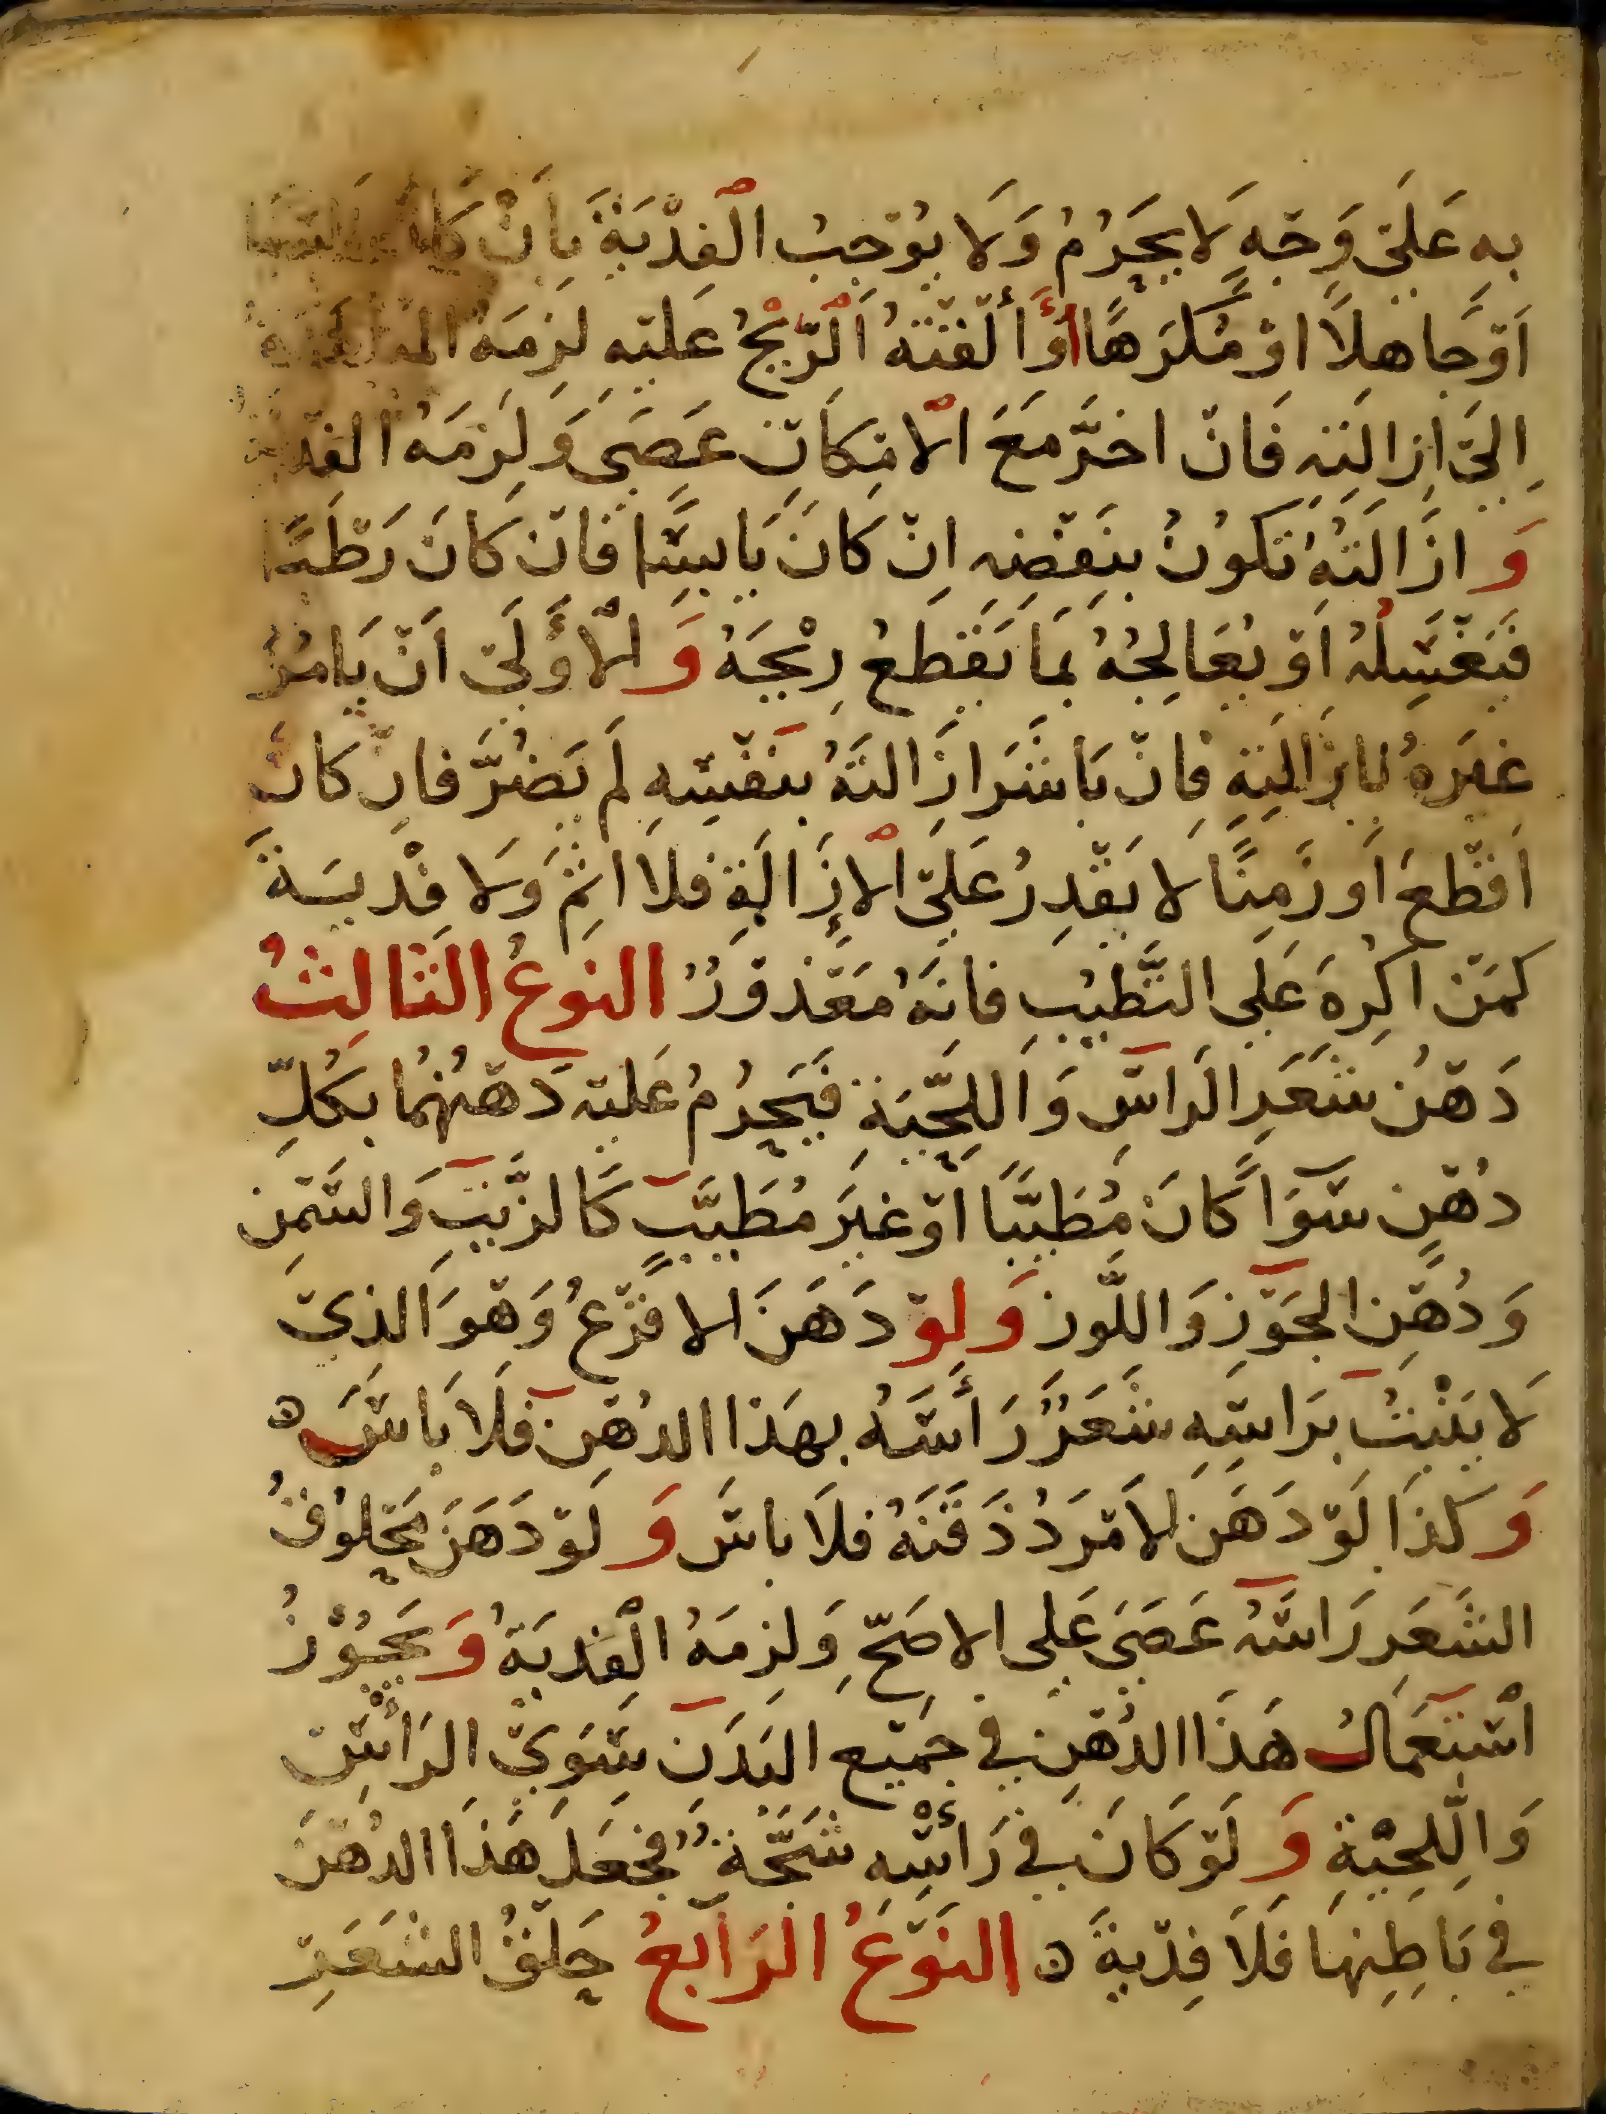 بِهِ عَلَى وَجْهٍ لَا يَحْرُمُ وَلَا يُوْجِبُ الْفِدْيَةَ بِاَنْ كَانَ
اَوْ جَاهِلًا اوْ مُكْرَهًا أوْ أَلْقَتْهُ اَلرّيْحُ عَليْهِ لَزِمَهُ
اِلَى اِزَالَتِهِ فَانْ اخَّرَ مَعَ الْامْكَانِ عَصَى وَلَزِمَهُ الفد
وَ ازَالَتُهُ تَكُونُ بِنَفْضِهِ اِنْ كَانَ يَابِسًا فَانْ كَانَ رَطْبًا
فَيَغْسِلُهُ اَوْ يُعَالِجُهُ بمَا يَقْطعُ رِيْحَهُ وَ الْأَوْلَى اَنْ يَامُرَ
غيَرهُ بِازَالَتِهِ فَانْ بَاشَرَ ازَالتَهُ بِنَفْسِهِ لَمْ يَضُرَّ فَانْ كَانَ
اَقْطعَ اَو زَمِنًا لا يَقْدِرُ عَلَى الْإزَالَةِ فلَا اثِمَ وَلا فِدْيَةَ
كَمَنْ اكْرِهَ عَلَى التَّطَيُبِ فَانَهُ مَعْذوْرٌ النوْعُ الثَالِثُ
دَهْنُ شَعَرِ الرَاسِ وَاَللِّحْيَةِ فَيَحْرُمُ عَليْهِ دَهْنُهُمَا بكُلِّ
دُهْنٍ سَوَآ كَانَ مُطَيَّبًا اوْ غيَرَ مُطَيَّبٍ كَالزَّيْتِ وَالسَّمْنِ
وَدُهْنِ الجَوْزِ وَاللَّوز وَلوْ دَهَنَ الاقْرَعُ وَهْوَ الذيْ
لَا يَنْبُتُ بَرَاسِهِ شَعَرٌ رَأسَهُ بهَذا الدُهْنِ فَلَا بَاسَ ه
وَكذَا لَوْ دَهَنَ الامْرَدُ ذَقَنَهُ فلَا بَاسَ وَلَوْ دَهَنَ مَحْلوُقُ
الشَعَرِ رَاسَهُ عَصَى عَلى الاصَحِّ وَلزِمَهُ الْفِديَةُ وَيَجُوْزُ
اسْتِعْمَالُ هَذَا الدُهْنِ فِي جَمِيْعِ البَدَنِ سِوَى الرَأسِ
وَاللِّحْيَةِ وَلَوْ كَانَ فِي رَأسِهِ شَجَّةٌ فجَعَلَ هَذَا الدُهْنَ
في بَاطِنِهَا فَلَا فِدْيةَ ه النَوْعُ الرَابعُ حَلْقُ الشَعَرِ